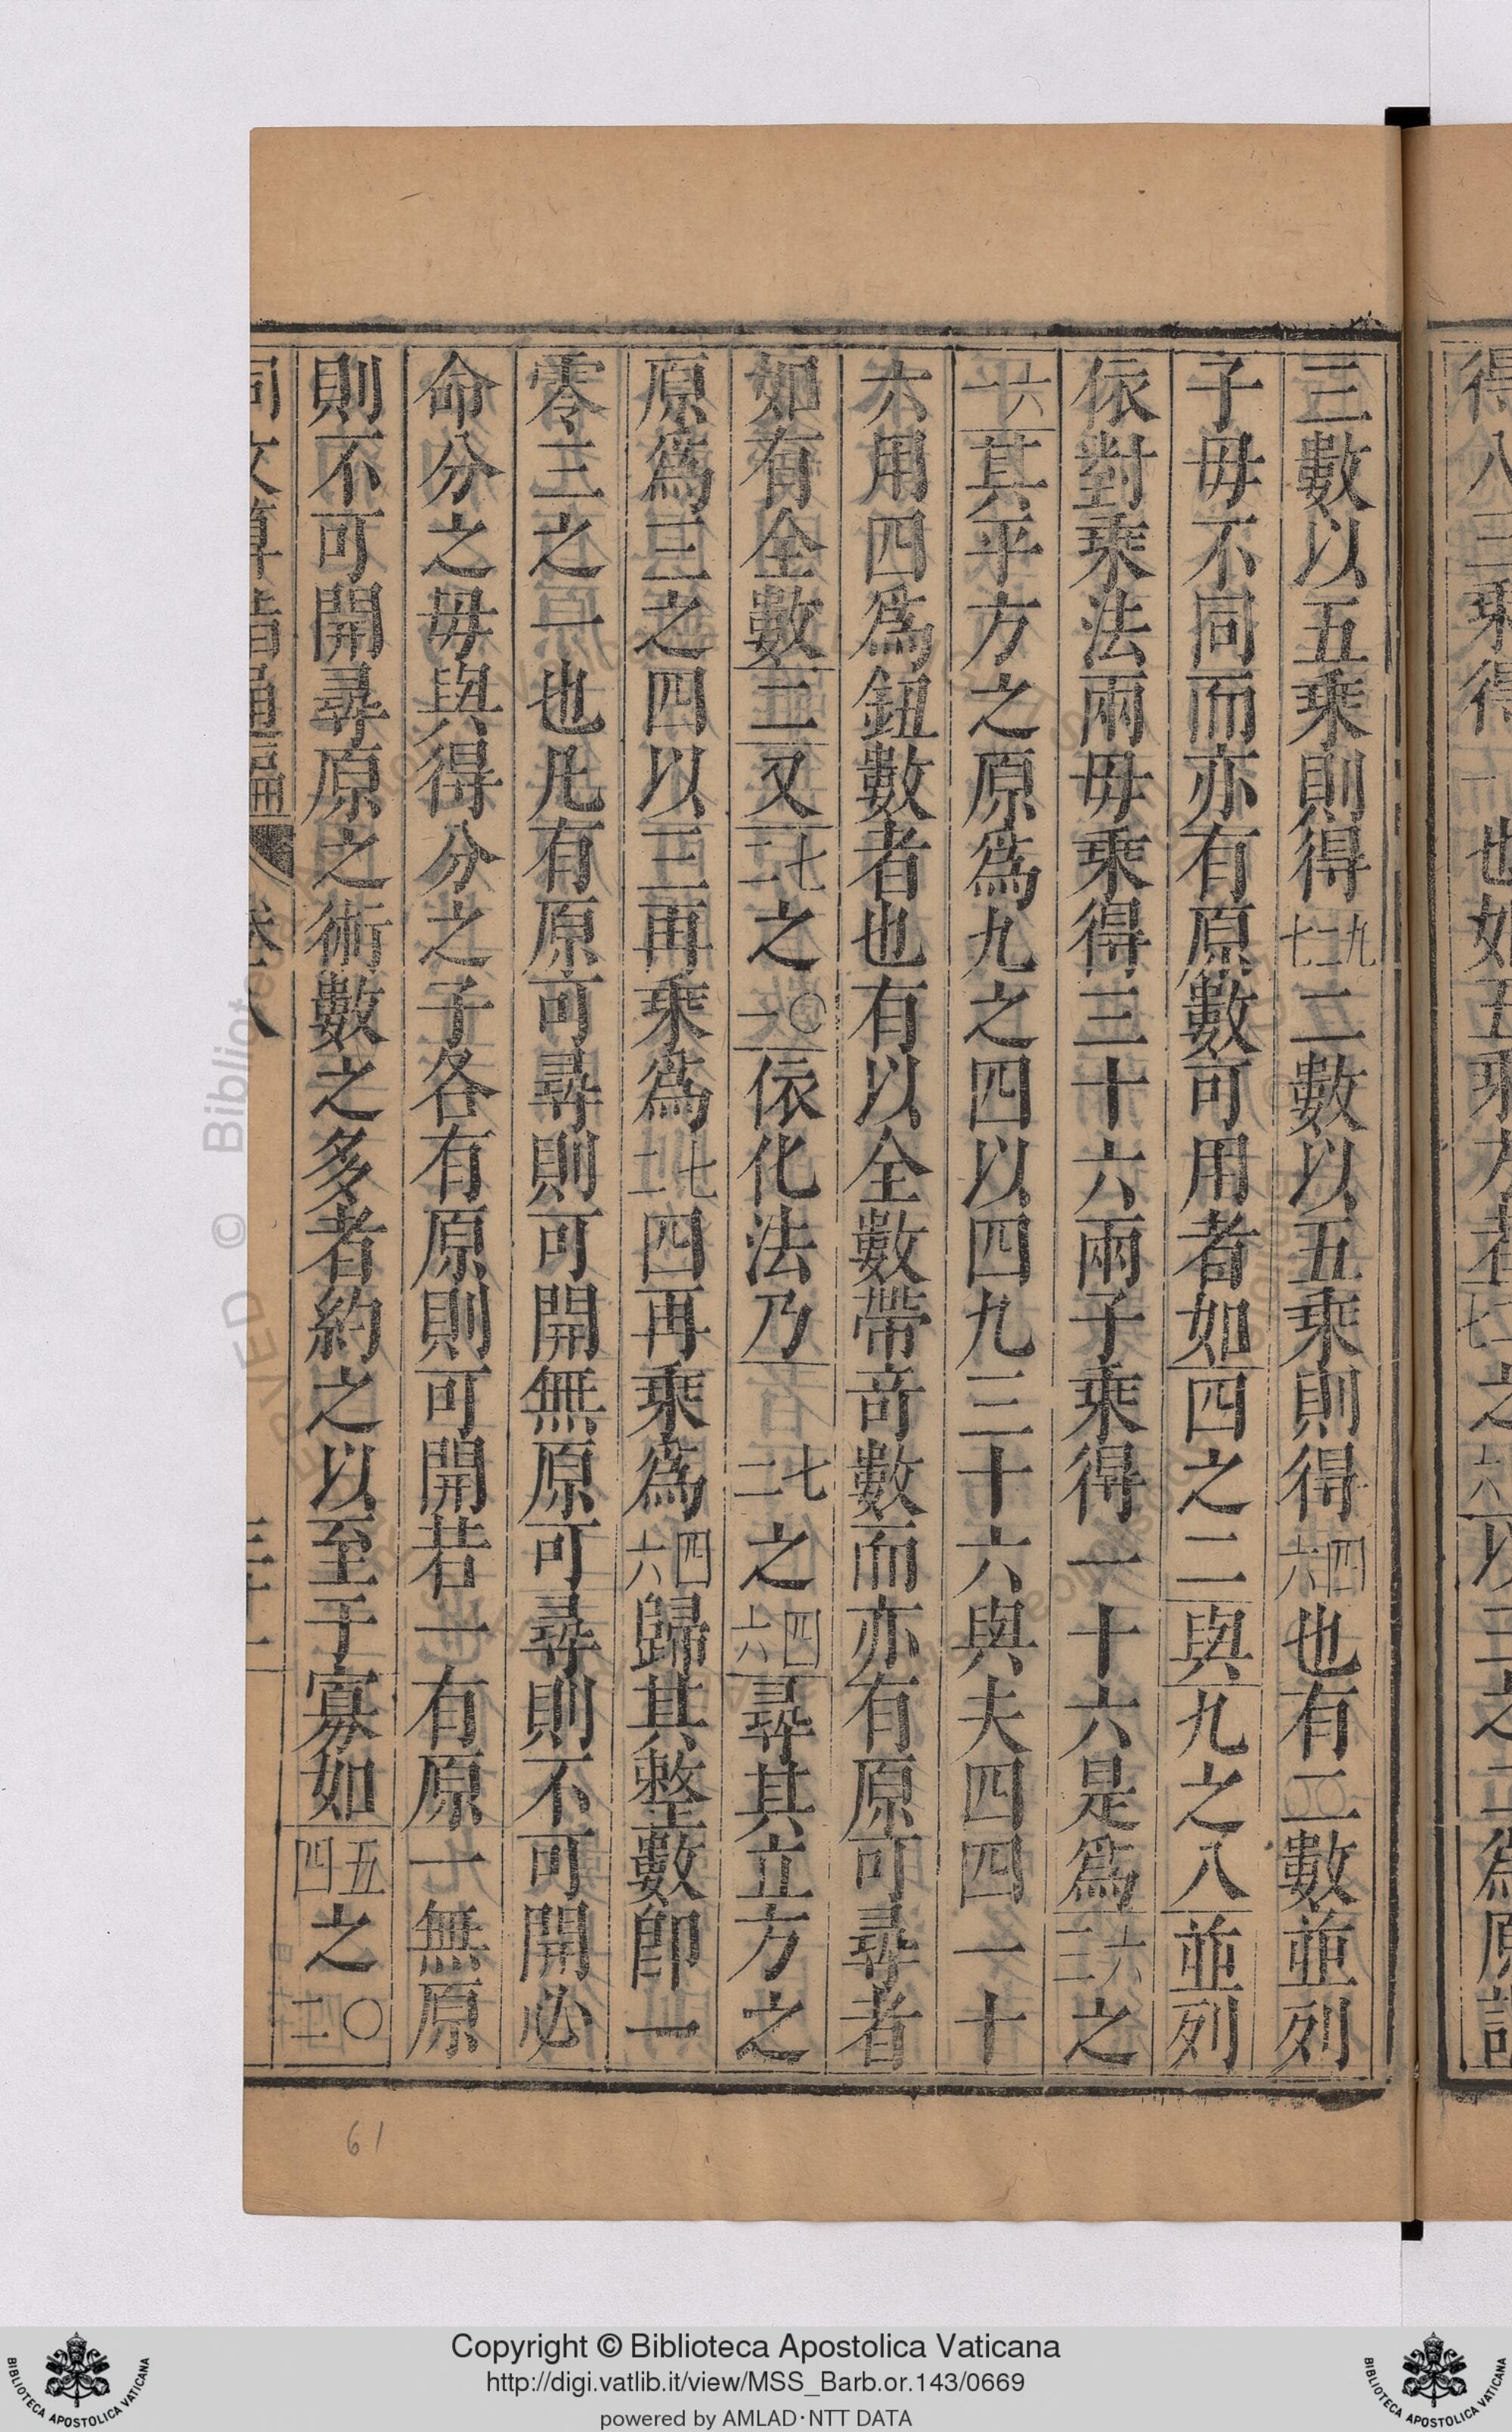 三數以五乘則得七二九二數以五乘則得六四也有二數並列
子毋不同而亦有原數可用者如四之二與九之八並列
依對乘法兩毋乘得三十六兩子乘得一十六是爲三六之
一六其平方之原爲九之四以四九三十六與夫四四一十
六用四爲鈕數者也有以全數帶竒數而亦有原可尋者
如有全數二又二七之一〇依化法乃二七之六四尋其立方之
原爲三之四以三再乘爲二七四再乘爲六四歸其整數卽一
零三之一也凡有原可尋則可開無原可尋則不可開必
命分之毋與得分之子各有原則可開若一有原一無原
則不可開尋原之術數之多者約之以至于寡如四五之二〇
同文算指通編 卷八
61
© Biblioteca
Copyright © Biblioteca Apostolica Vaticana
http://digi.vatlib.it/view/MSS_Barb.or.143/0669
powered by AMLAD·NTT DATA
BIBLIOTECA APOSTOLICA VATICANA
BIBLIOTECA APOSTOLICA VATICANA